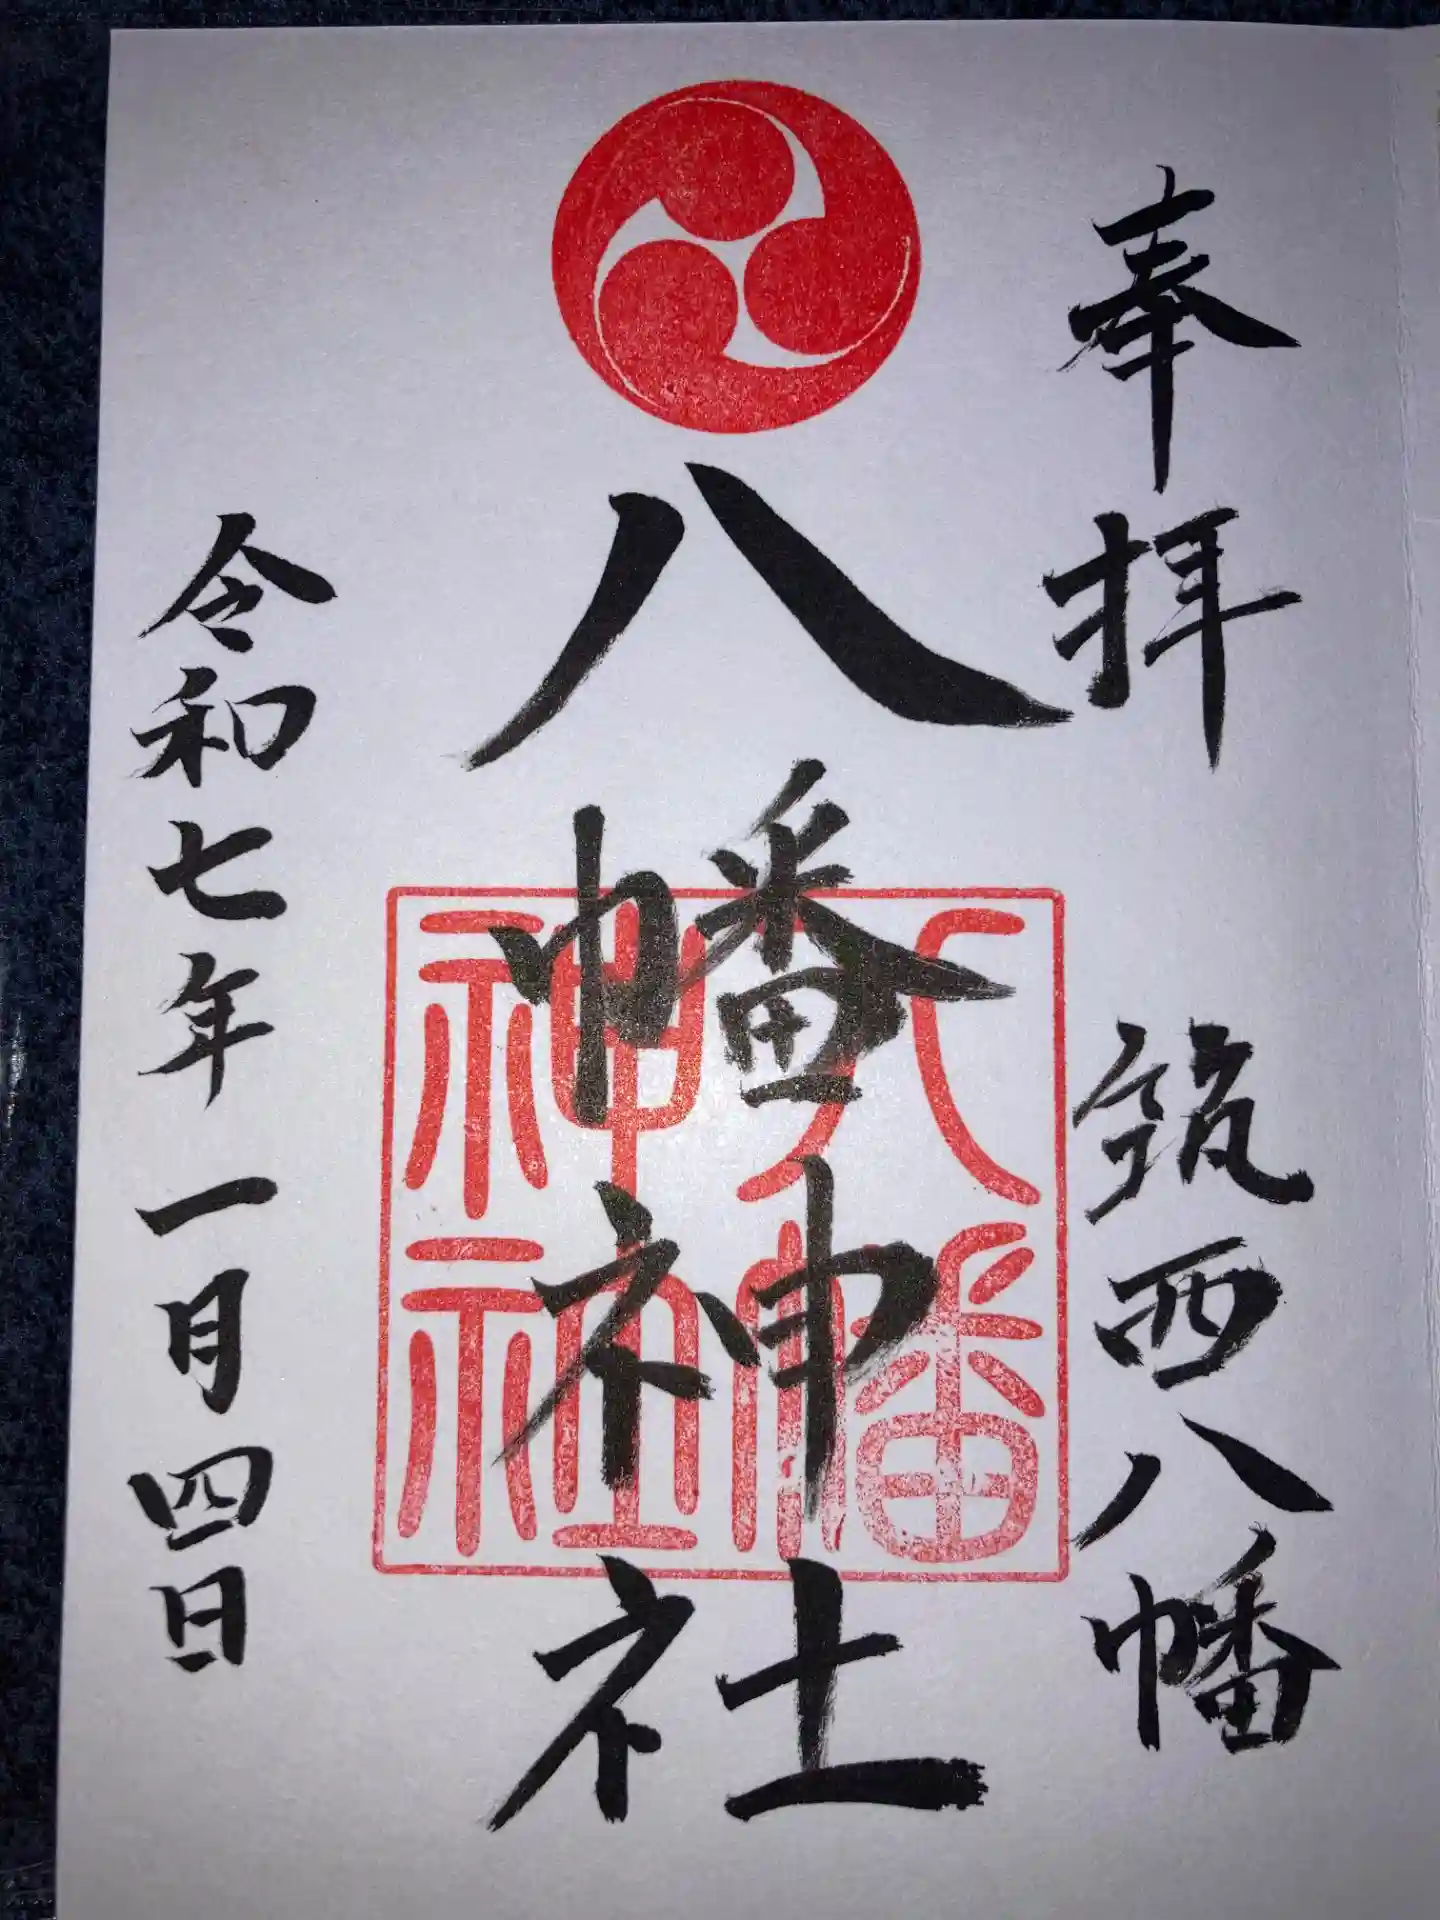 奉拝
筑西八幡
八幡神社
八幡
神社
令和七年一月四日